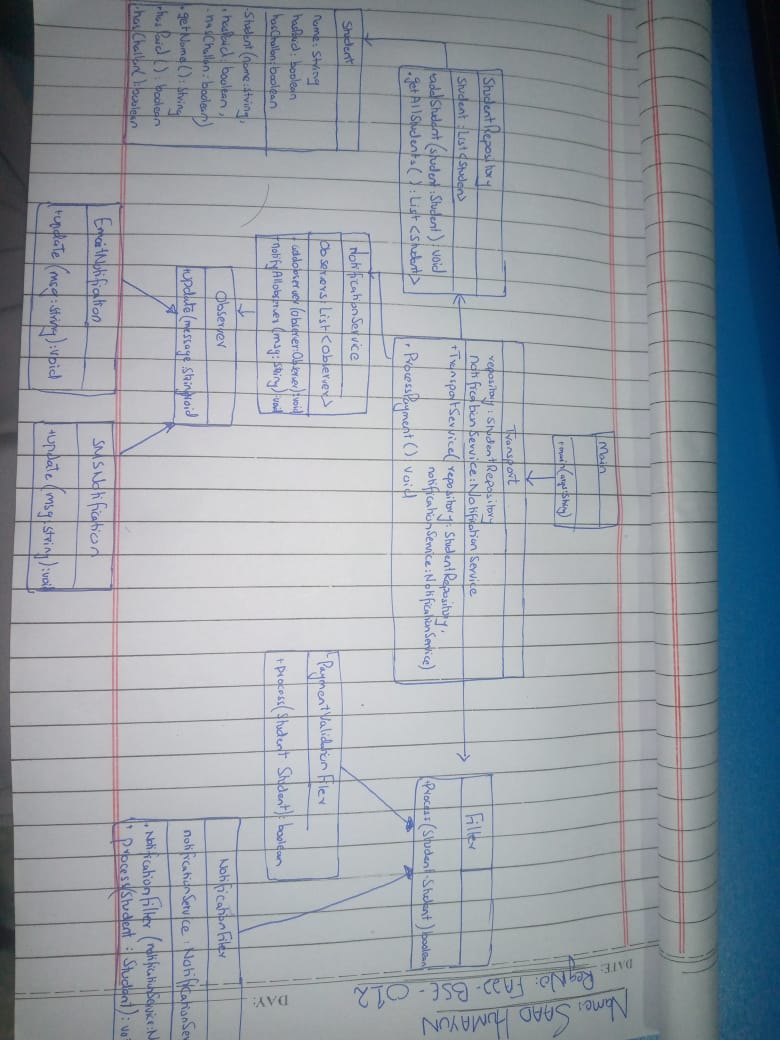 Name: SAAD HUMAYUN
DATE:
Reg No: FA22-BSE-012
DAY:
Main
+main(args:String)
Transport
repository: StudentRepository
notificationService: Notification Service
+TransportService( repository: StudentRepository,
notificationService: NotificationService)
+ ProcessPayment() void
StudentRepository
Student: List<Student>
addStudent (student: Student): void
+getAllStudents(): List <Student>
Student
name: String
haPaid: boolean
hasChallan: boolean
-Student(name: string,
haPaid: boolean,
hasChallan: boolean)
+getName(): String
+has Paid(): boolean
+hasChallan(): boolean
NotificationService
Observers: List<Observer>
+addobserver(observer:Observer): void
+notifyAllobserver(msg: String): void
Observer
+update(message: String)void
EmailNotification
+update (msg: String): void
SMSNotification
+update (msg: string): void
Filter
+Process(Student: Student) boolean
PaymentValidation Filer
+process(Student Student): boolean
Notification Filer
notificationService : NotificationSer
+NotificationFilter (notificationService:N
+ Process(Student : Student): vo